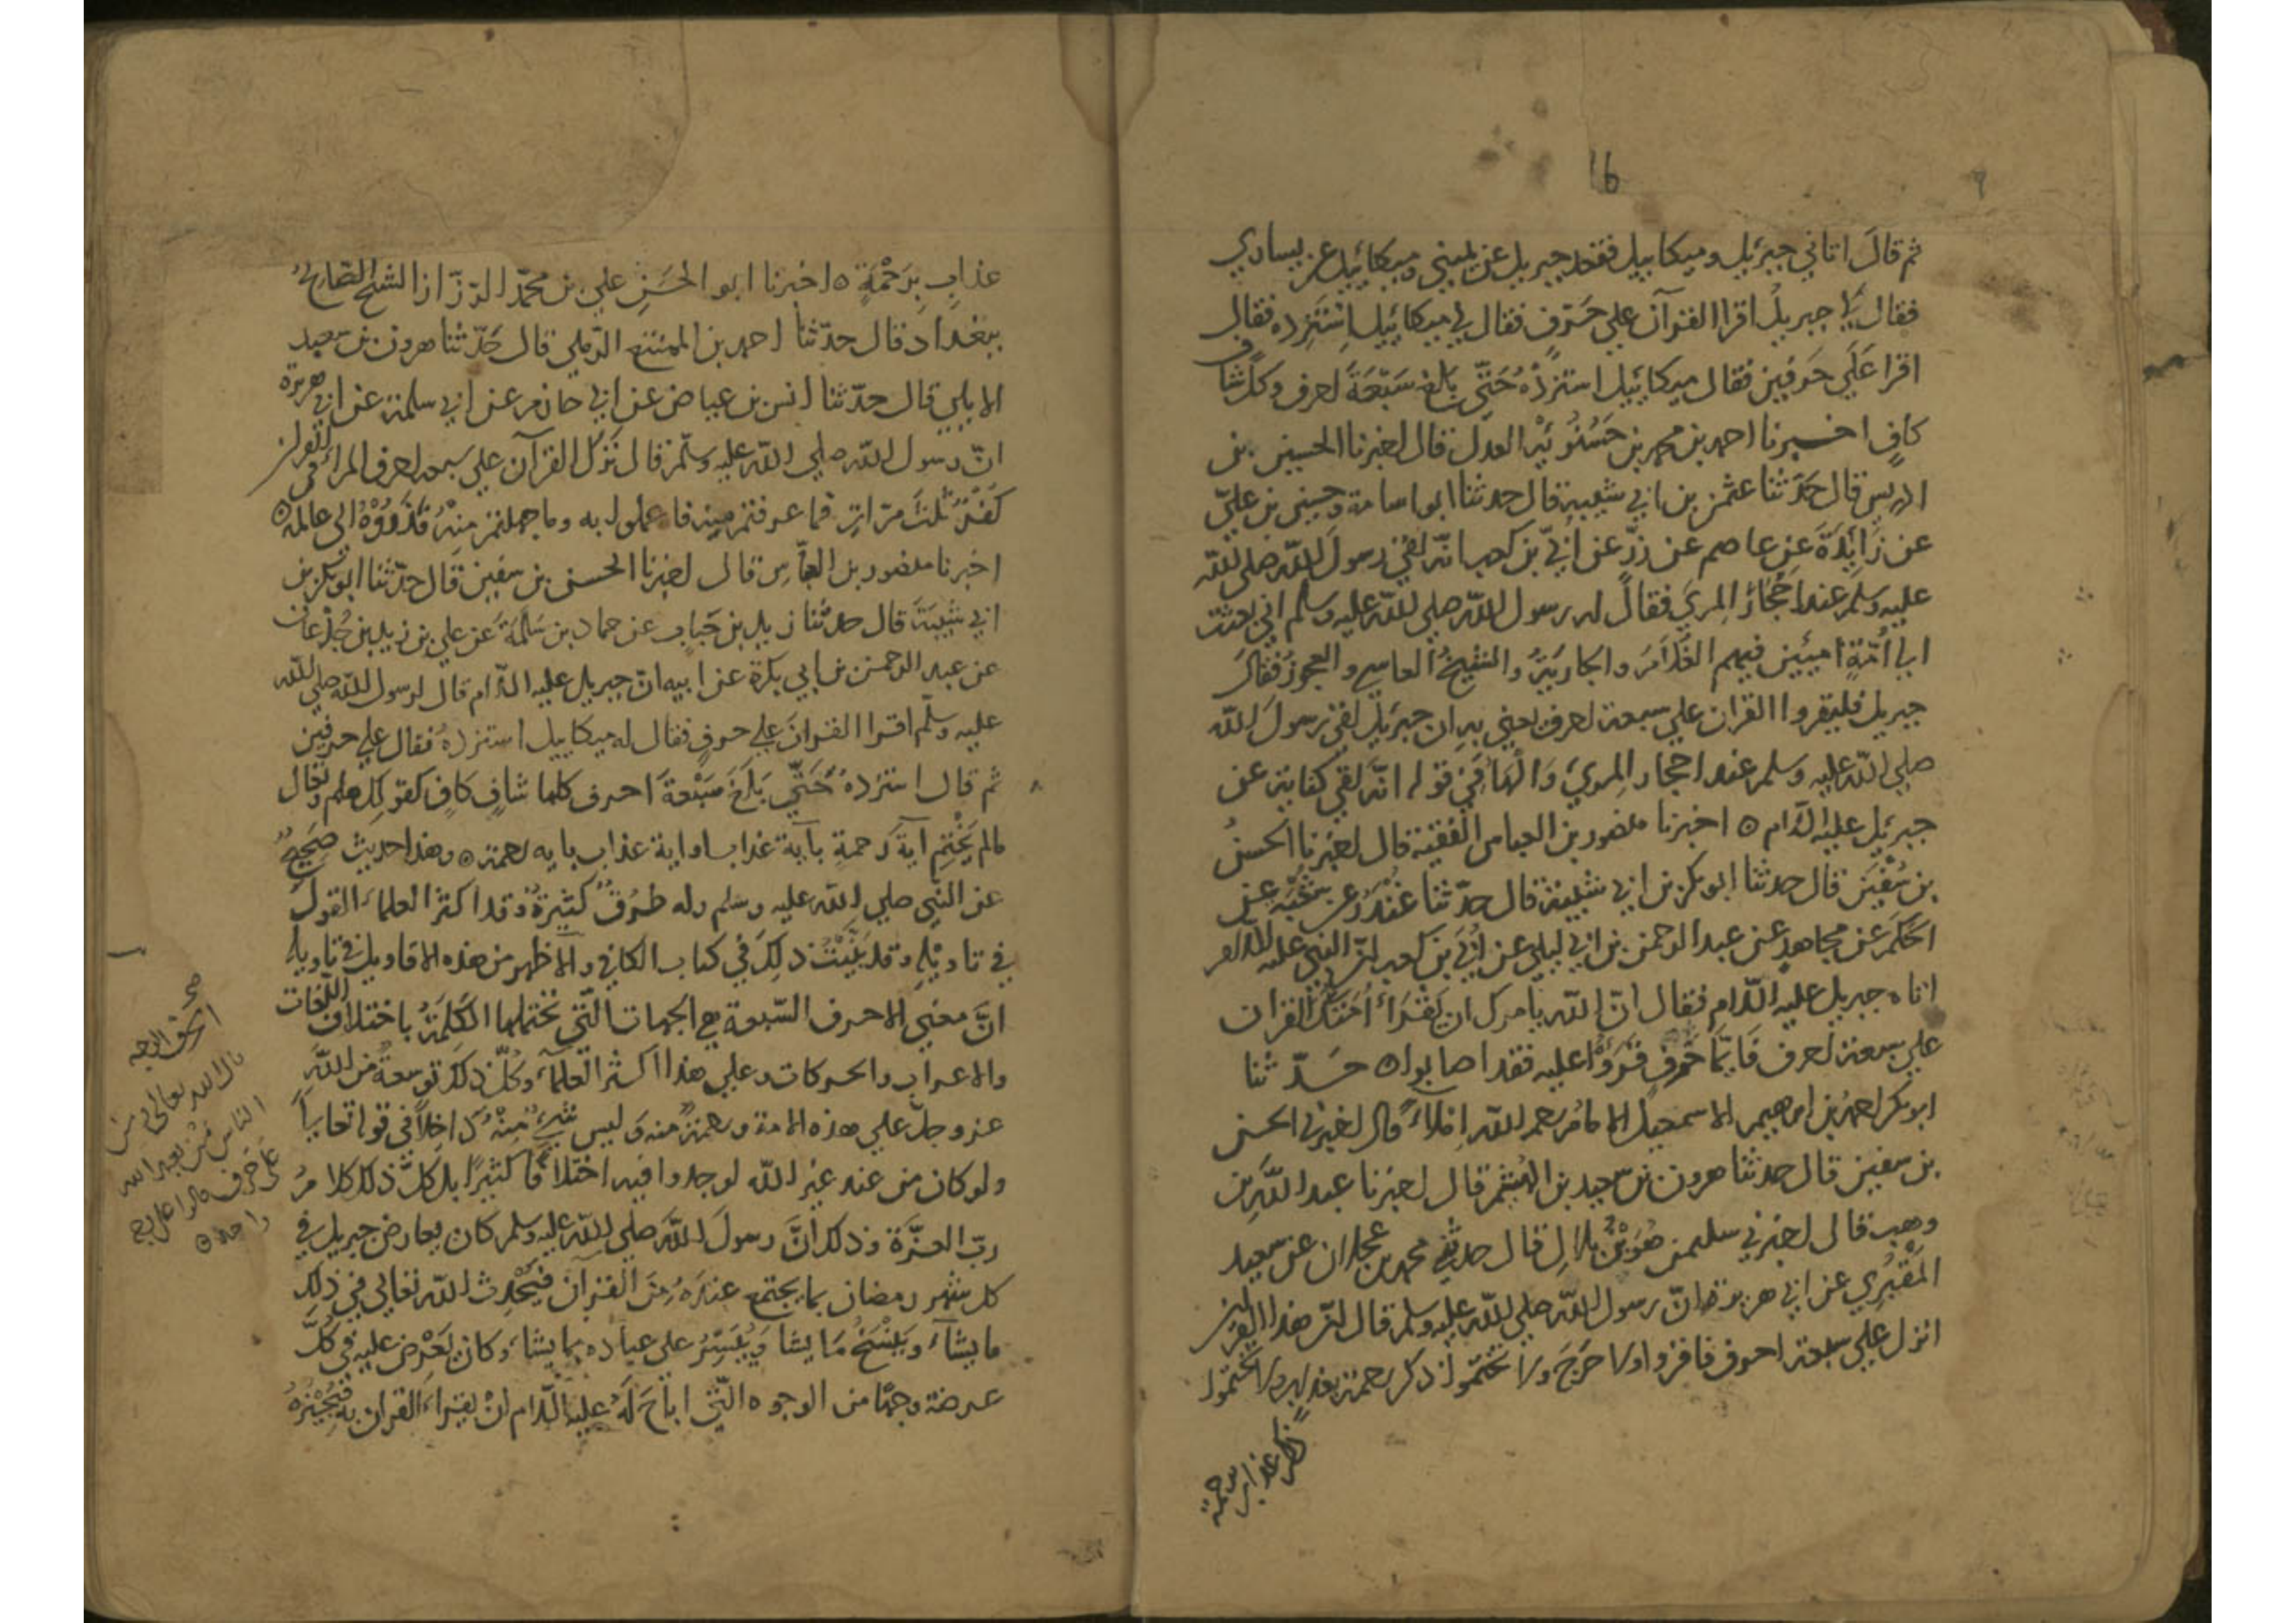 16
ثم قال اتاني جبرئيل وميكاييل فقعد جبريل عن يميني وميكائيل عن يساري
فقال لي جبريل اقرا القرآن علي حرف فقال لي ميكائيل استزده فقال
اقرا علي حرفين فقال ميكائيل استزده حتي بلغ سبعة احرف وكل شاف
كاف اخبرنا احمد بن محمد بن حسنويه العدل قال اخبرنا الحسين بن
ادريس قال حدثنا عثمن بن ابي شيبة قال حدثنا ابو اسامة وحسين بن علي
عن زائدة عن عاصم عن زر عن ابي بن كعب انه لقي رسول الله صلي الله
عليه وسلم عند احجار المري فقال له رسول الله صلي الله عليه وسلم اني بعثت
الي امة اميين فيهم الغلام والجارية والشيخ العاسي والعجوز فقال
جبريل فليقروا القران علي سبعة احرف يعني به ان جبريل لقي رسول الله
صلي الله عليه وسلم عند احجار المري والهاء في قوله انه لقي كناية عن
جبرئيل عليه السلام ٥ اخبرنا منصور بن العباس الفقيه قال اخبرنا الحسن
بن سفين قال حدثنا ابو بكر بن ابي شيبة قال حدثنا غندر عن شعبة عن
الحكم عن مجاهد عن عبد الرحمن بن ابي ليلي عن ابي بن كعب ان النبي عليه السلام
اتاه جبريل عليه السلام فقال ان الله يامرك ان تقراء امتك القران
علي سبعة احرف فايما حرف قرؤا عليه فقد اصابوا ٥ حدثنا
ابو بكر احمد بن ابرهيم الاسمعيلي الامام رحمه الله املاء قال اخبرني الحسن
بن سفين قال حدثنا هرون بن سعيد بن الهيثم قال اخبرنا عبد الله بن
وهب قال اخبرني سليمن هو بن بلال قال حدثني محمد بن عجلان عن سعيد
المقبري عن ابي هريرة ان رسول الله صلي الله عليه وسلم قال ان هذا القران
انزل علي سبعة احرف فاقروا ولا حرج ولا تختموا ذكر رحمة بعذاب ولا تختموا
ذكر عذاب برحمة
عذاب برحمة ٥ اخبرنا ابو الحسن علي بن محمد الرزاز الشيخ الصالح
ببغداد قال حدثنا احمد بن الممتنع الرملي قال حدثنا هرون بن سعيد
الايلي قال حدثنا انس بن عياض عن ابي حازم عن ابي سلمة عن ابي هريرة
ان رسول الله صلي الله عليه وسلم قال نزل القرآن علي سبعة احرف المراء في القران
كفر ثلث مرات فما عرفتم منه فاعملوا به وما جهلتم منه فردوه الي عالمه ٥
اخبرنا منصور بن العباس قال اخبرنا الحسن بن سفين قال حدثنا ابو بكر بن
ابي شيبة قال حدثنا زيد بن حباب عن حماد بن سلمة عن علي بن زيد بن جدعان
عن عبد الرحمن بن ابي بكرة عن ابيه ان جبريل عليه السلام قال لرسول الله صلي الله
عليه وسلم اقرا القران علي حرف فقال له ميكاييل استزده فقال علي حرفين
ثم قال استزده حتي بلغ سبعة احرف كلها شاف كاف كقولك هلم وتعال
مالم يختم آية رحمة بآية عذاب او اية عذاب باية رحمة ٥ وهذا حديث صحيح
عن النبي صلي الله عليه وسلم وله طرق كثيرة وقد اكثر العلماء القول
في تاويله وقد بينت ذلك في كتاب الكافي والاظهر من هذه الاقاويل في تاويله
ان معني الاحرف السبعة هي الجهات التي تحتملها الكلمة باختلاف اللغات
والاعراب والحركات وعلي هذا اكثر العلماء وكل ذلك توسعة من الله
عز وجل علي هذه الامة ورحمة منه وليس شيء منه داخلا في قوله تعالي
ولو كان من عند غير الله لوجدوا فيه اختلافا كثيرا بل كل ذلك كلام
رب العزة وذلك ان رسول الله صلي الله عليه وسلم كان يعارض جبريل في
كل شهر رمضان بما يجتمع عنده من القرآن فيحدث الله تعالي في ذلك
ما يشاء وينسخ ما يشا وييسر علي عباده ما يشاء وكان يعرض عليه في كل
عرضة وجها من الوجوه التي اباح له عليه السلام ان يقراء القران به فيجيزه
قال الله تعالى ومن
الناس من يعبد الله
على حرف قالوا على وجه
واحد ٥